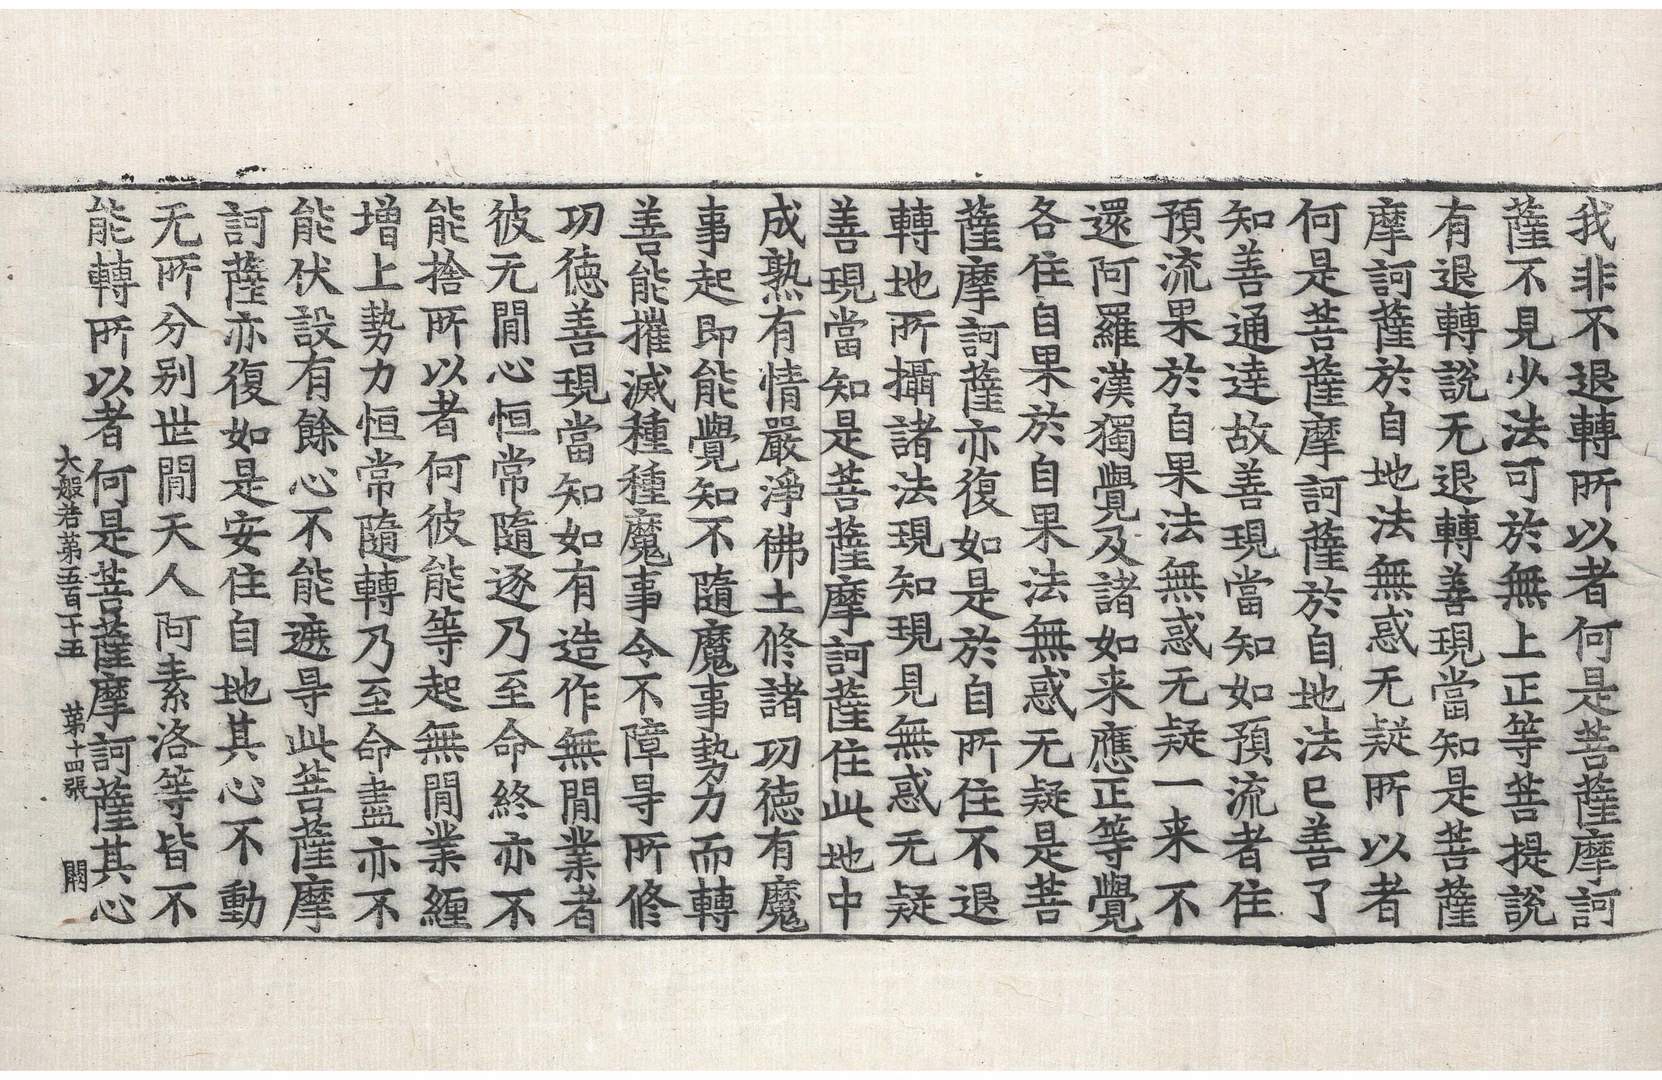 我非不退轉所以者何是菩薩摩訶
薩不見少法可於無上正等菩提說
有退轉說无退轉善現當知是菩薩
摩訶薩於自地法無惑无疑所以者
何是菩薩摩訶薩於自地法已善了
知善通達故善現當知如預流者住
預流果於自果法無惑无疑一来不
還阿羅漢獨覺及諸如来應正等覺
各住自果於自果法無惑无疑是菩
薩摩訶薩亦復如是於自所住不退
轉地所攝諸法現知現見無惑无疑
善現當知是菩薩摩訶薩住此地中
成熟有情嚴淨佛土修諸功徳有魔
事起即能覺知不隨魔事勢力而轉
善能摧滅種種魔事令不障㝵所修
功徳善現當知如有造作無閒業者
彼无閒心恒常隨逐乃至命終亦不
能捨所以者何彼能等起無閒業纏
增上勢力恒常隨轉乃至命盡亦不
能伏設有餘心不能遮㝵此菩薩摩
訶薩亦復如是安住自地其心不動
无所分别世閒天人阿素洛等皆不
能轉所以者何是菩薩摩訶薩其心
大般若第五百十五 第十四張 閞